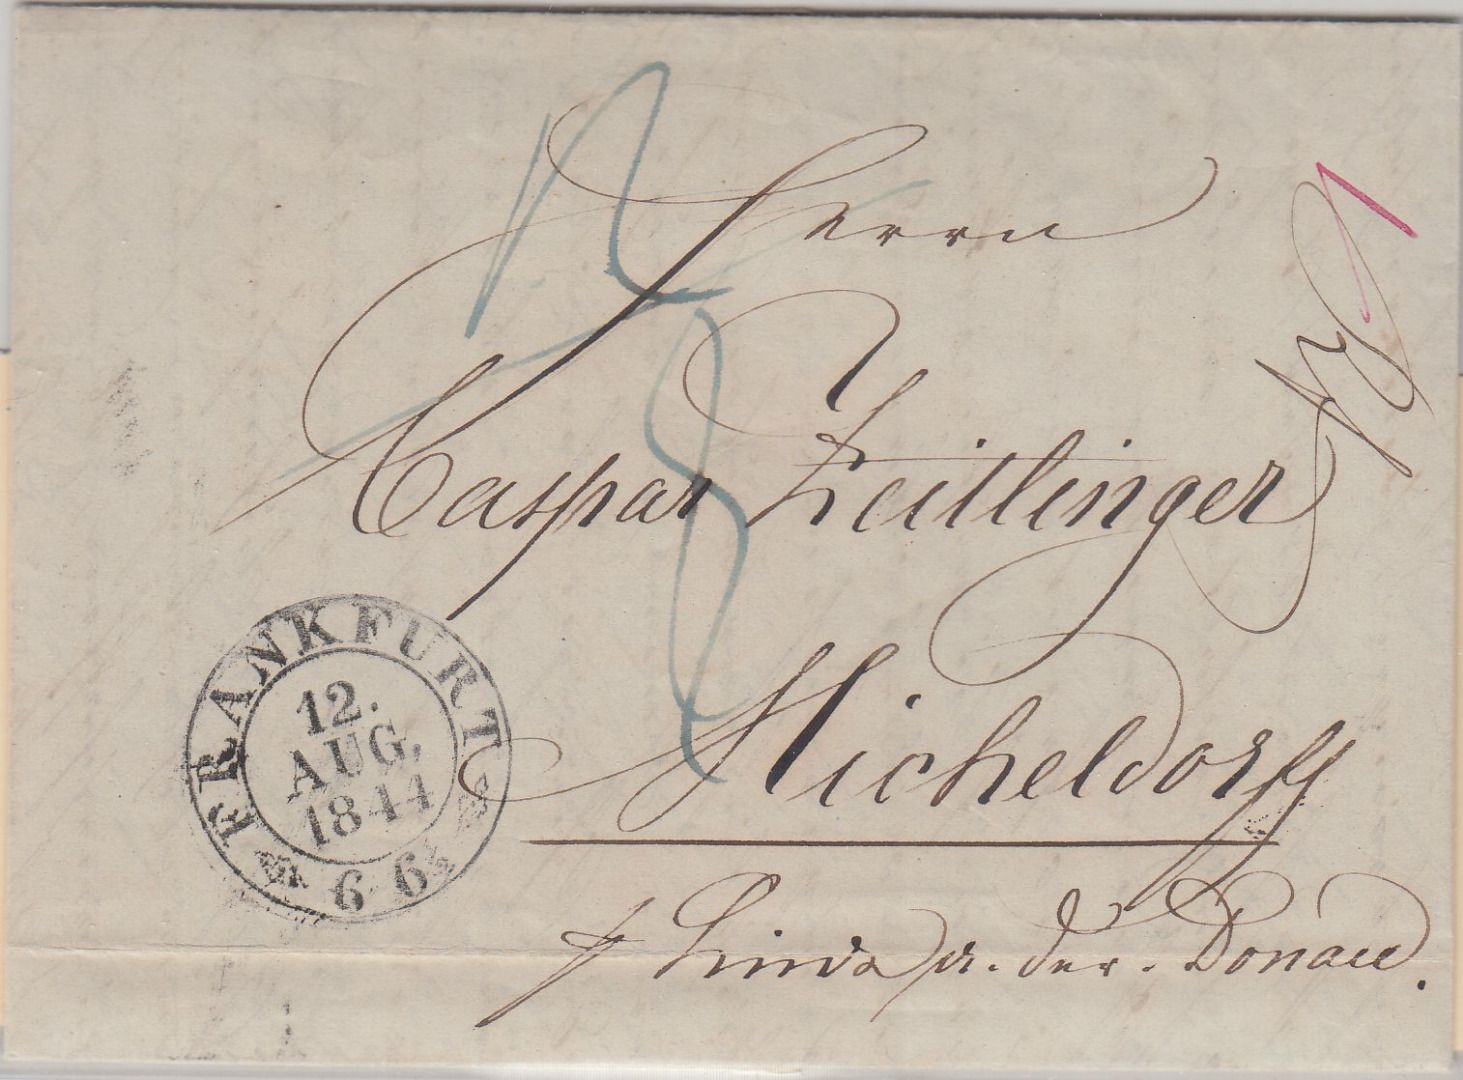 Herrn
Caspar Zeitlinger
Micheldorf
p Linz a. der Donau.
FRANKFURT
12.
AUG.
1844
6 6½
8